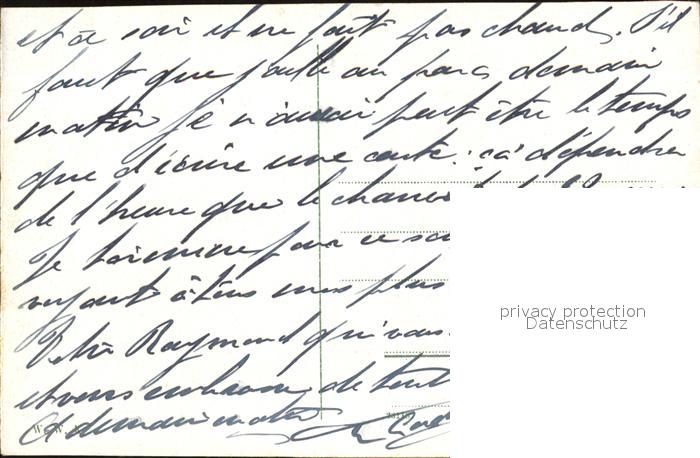 et ce soir il ne fait pas chaud. S'il
faut que j'aille au parc demain
matin je n'aurai peut être le temps
que d'écrire une carte : ça dépendra
de l'heure que le
Je termine pour ce soir
à tous mes plus
Votre Raymond qui vous
et vous embrasse de tout
A demain matin
privacy protection
Datenschutz